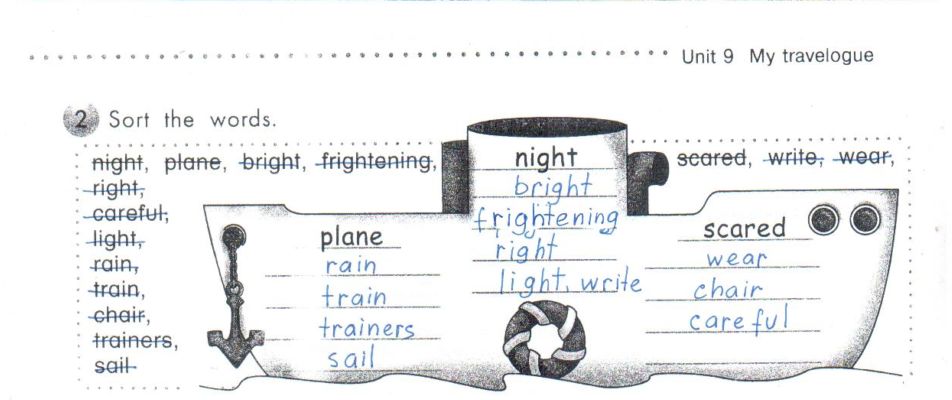 Unit 9 My travelogue
2 Sort the words.
night, plane, bright, frightening, scared, write, wear,
right,
careful,
light,
rain,
train,
chair,
trainers,
sail
night
bright
frightening
right
light, write
plane
rain
train
trainers
sail
scared
wear
chair
careful